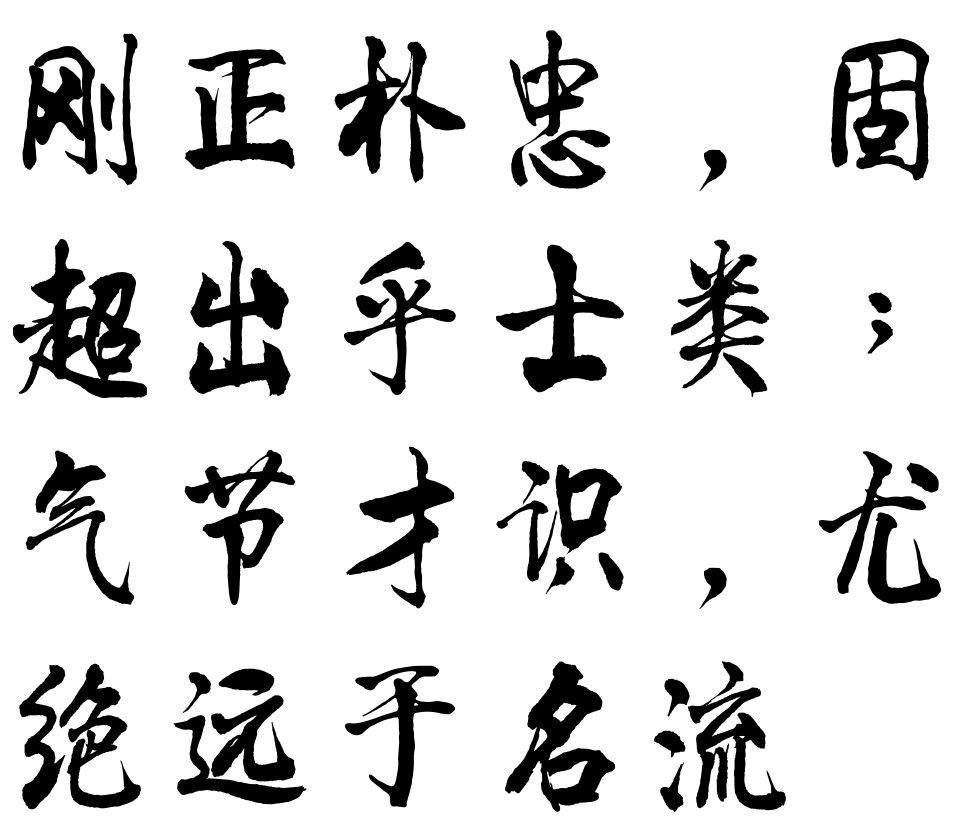 刚正朴忠，固
超出乎士类；
气节才识，尤
绝远于名流